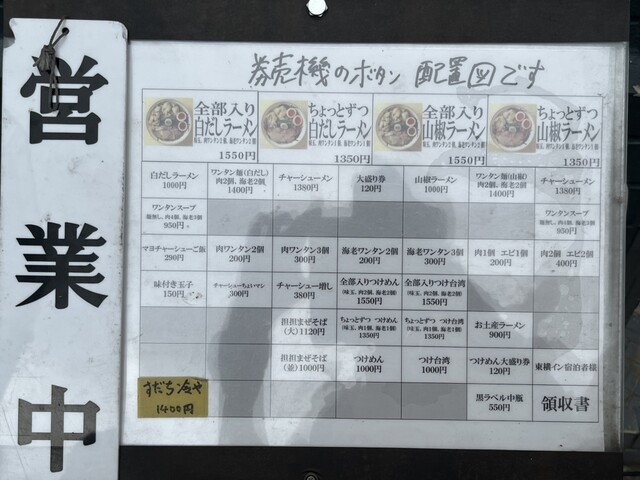 営業中
券売機のボタン 配置図です
全部入り
白だしラーメン
1550円
ちょっとずつ
白だしラーメン
1350円
全部入り
山椒ラーメン
1550円
ちょっとずつ
山椒ラーメン
1350円
白だしラーメン
1000円
ワンタン麺(白だし)
肉2個、海老2個
1400円
チャーシューメン
1380円
大盛り券
120円
山椒ラーメン
1000円
ワンタン麺(山椒)
肉2個、海老2個
1400円
チャーシューメン
1380円
ワンタンスープ
950円
ワンタンスープ
950円
マヨチャーシューご飯
290円
肉ワンタン2個
200円
肉ワンタン3個
300円
海老ワンタン2個
200円
海老ワンタン3個
300円
肉1個 エビ1個
200円
肉2個 エビ2個
400円
味付き玉子
150円
チャーシューちょいマシ
300円
チャーシュー増し
380円
全部入りつけめん
(味玉、肉2個、海老2個)
1550円
全部入りつけ台湾
(味玉、肉2個、海老2個)
1550円
担担まぜそば
(大)1120円
ちょっとずつ つけめん
(味玉、肉1個、海老1個)
1350円
ちょっとずつ つけ台湾
(味玉、肉1個、海老1個)
1350円
お土産ラーメン
900円
担担まぜそば
(並)1000円
つけめん
1000円
つけ台湾
1000円
つけめん大盛り券
120円
東横イン宿泊者様
すだち冷や
1400円
黒ラベル中瓶
550円
領収書